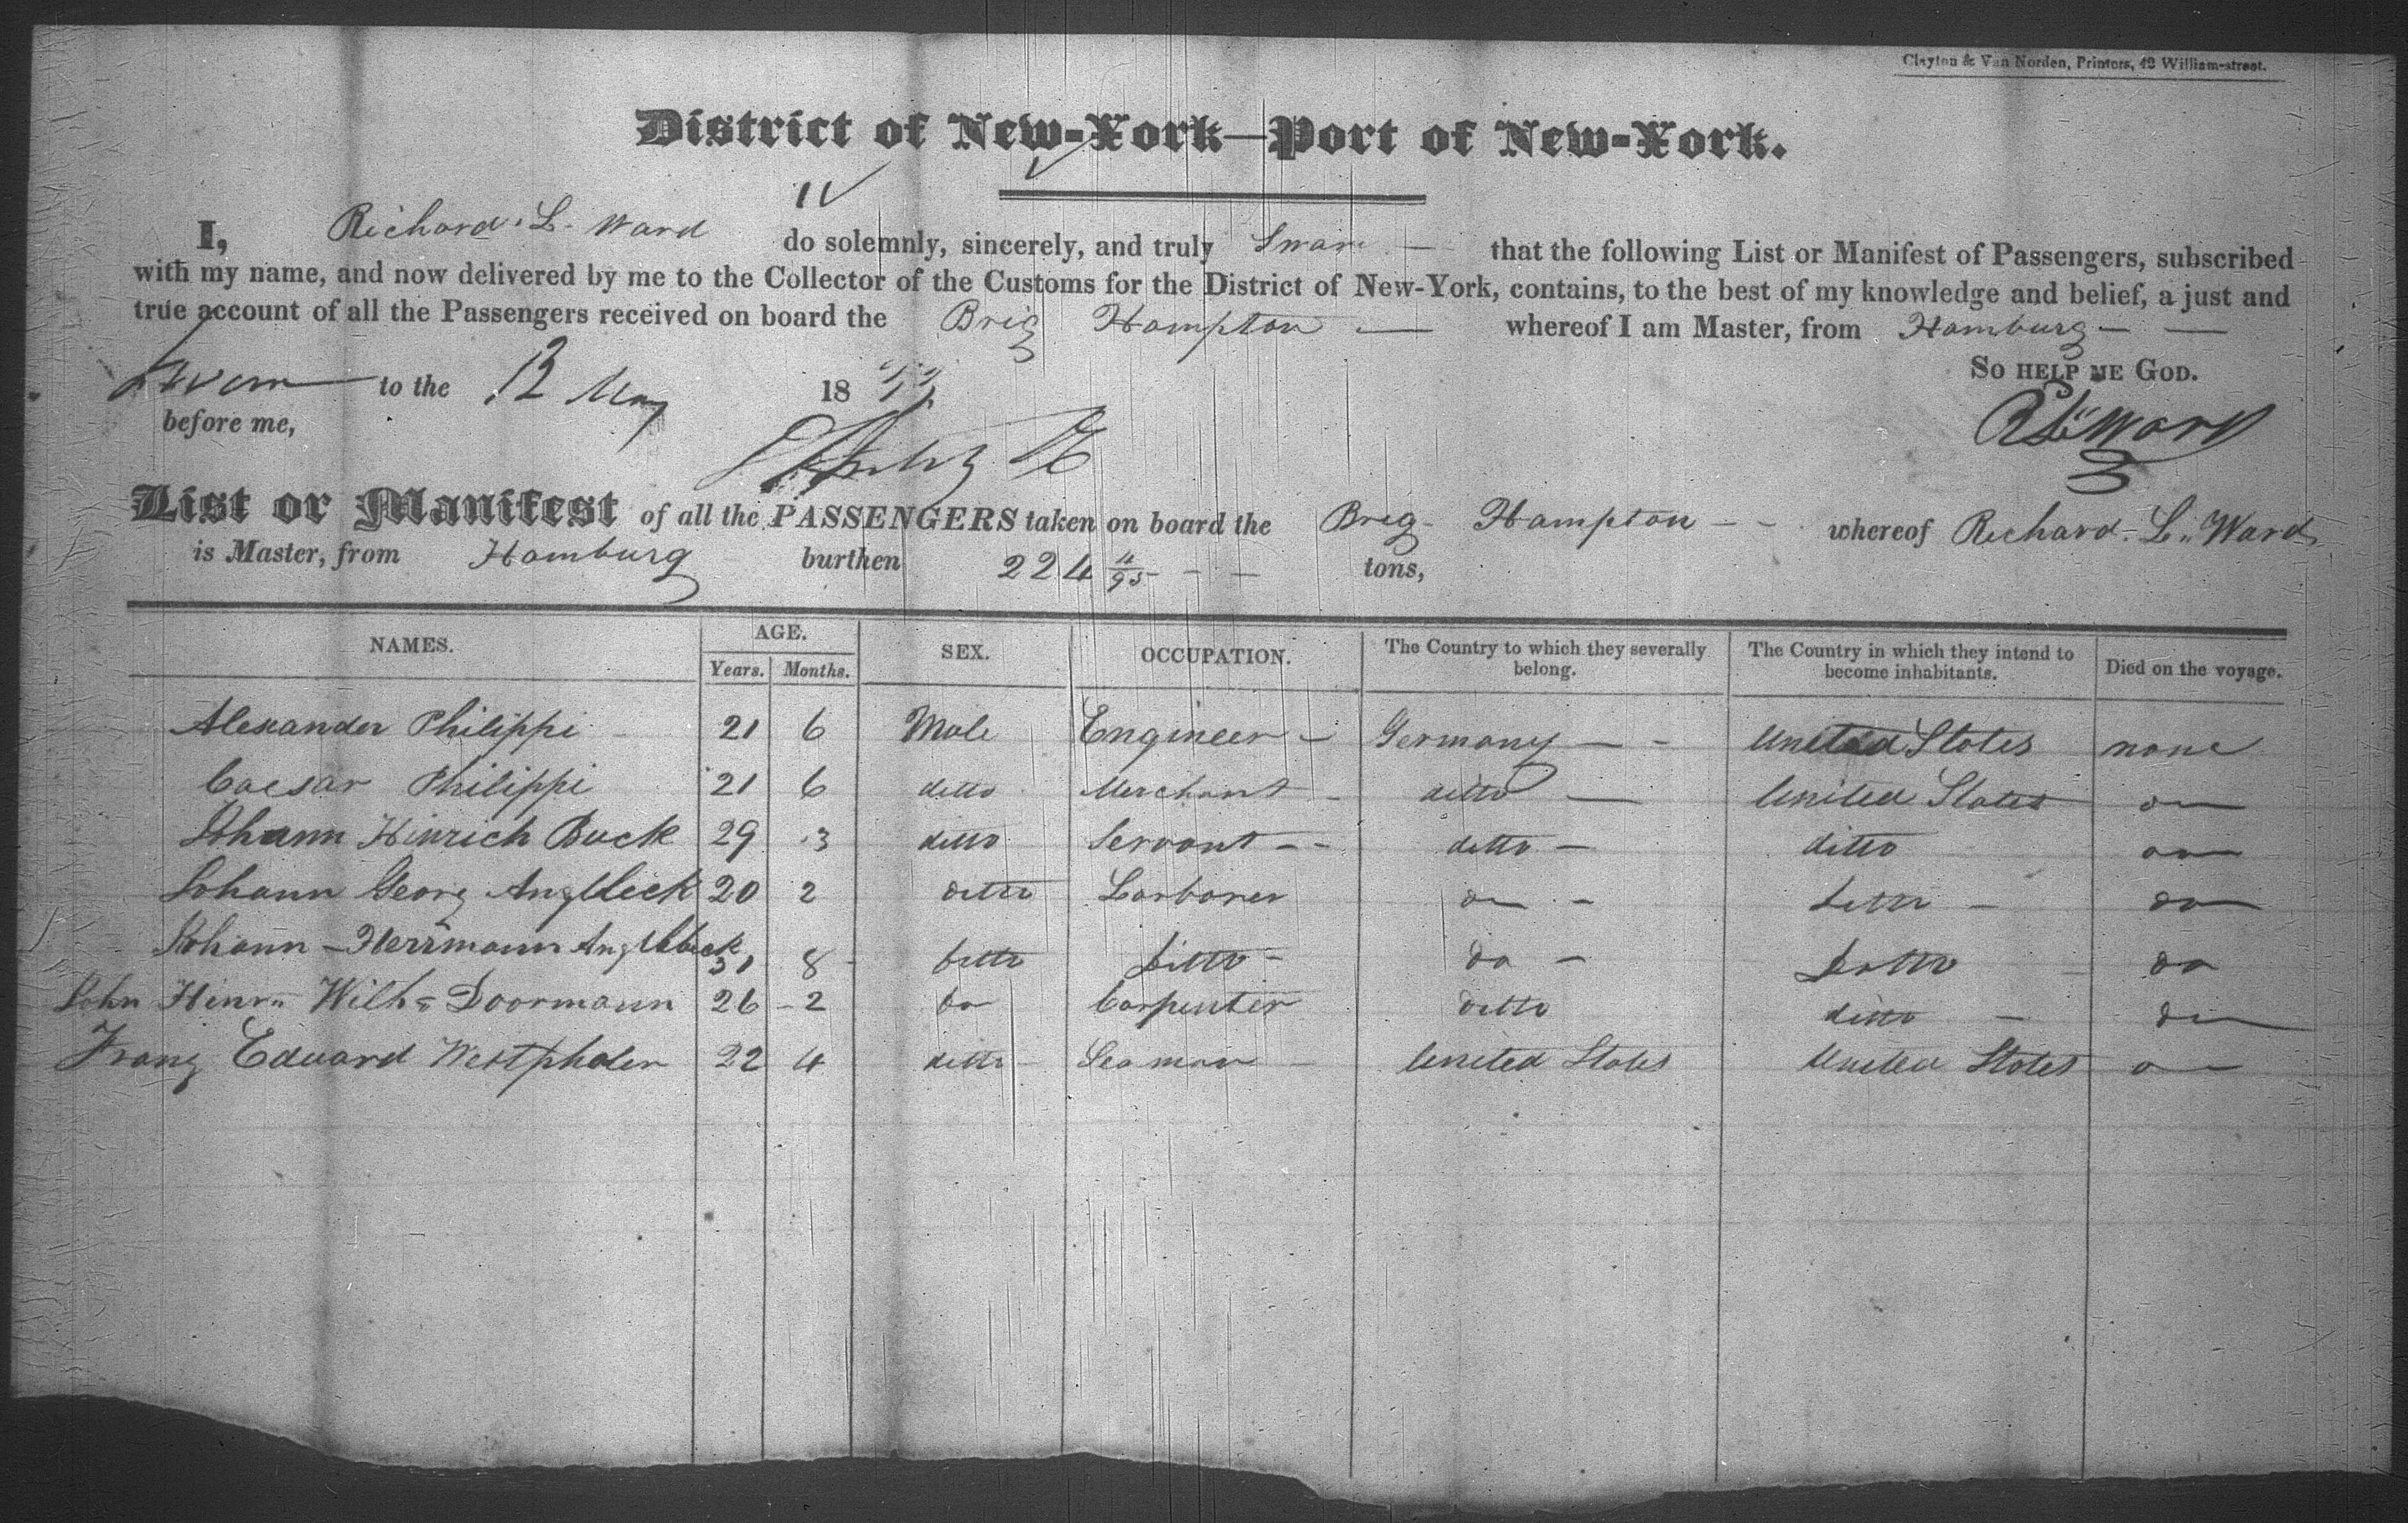 Clayton & Van Norden, Printers, 42 William-street.
District of New-York—Port of New-York.
I, Richard L. Ward do solemnly, sincerely, and truly Swar that the following List or Manifest of Passengers, subscribed
with my name, and now delivered by me to the Collector of the Customs for the District of New-York, contains, to the best of my knowledge and belief, a just and
true account of all the Passengers received on board the Brig Hampton — whereof I am Master, from Hamburg — —
So help me God.
Sworn to the 13 May 18
before me,
R L Ward
List or Manifest of all the PASSENGERS taken on board the Brig Hampton - - whereof Richard L. Ward
is Master, from Hamburg burthen 224 4/95 - - - tons,
NAMES. AGE. SEX. OCCUPATION. The Country to which they severally belong. The Country in which they intend to become inhabitants. Died on the voyage.
Years. Months.
Alexander Philippi 21 6 Male Engineer — Germany — - United States none
Caesar Philippi 21 6 ditto Merchant - ditto — United States do
Johann Hinrich Buck 29 3 ditto Servant - - ditto — ditto do
Johann Georg 20 2 ditto Larborer do - ditto - do
Johann - Herrmann 31 8 ditto ditto - do - ditto do
John Hinr. Wilh. Doormann 26 - 2 do Carpenter ditto ditto - do
Franz Eduard Westphalen 22 4 ditto Seaman United States United States do